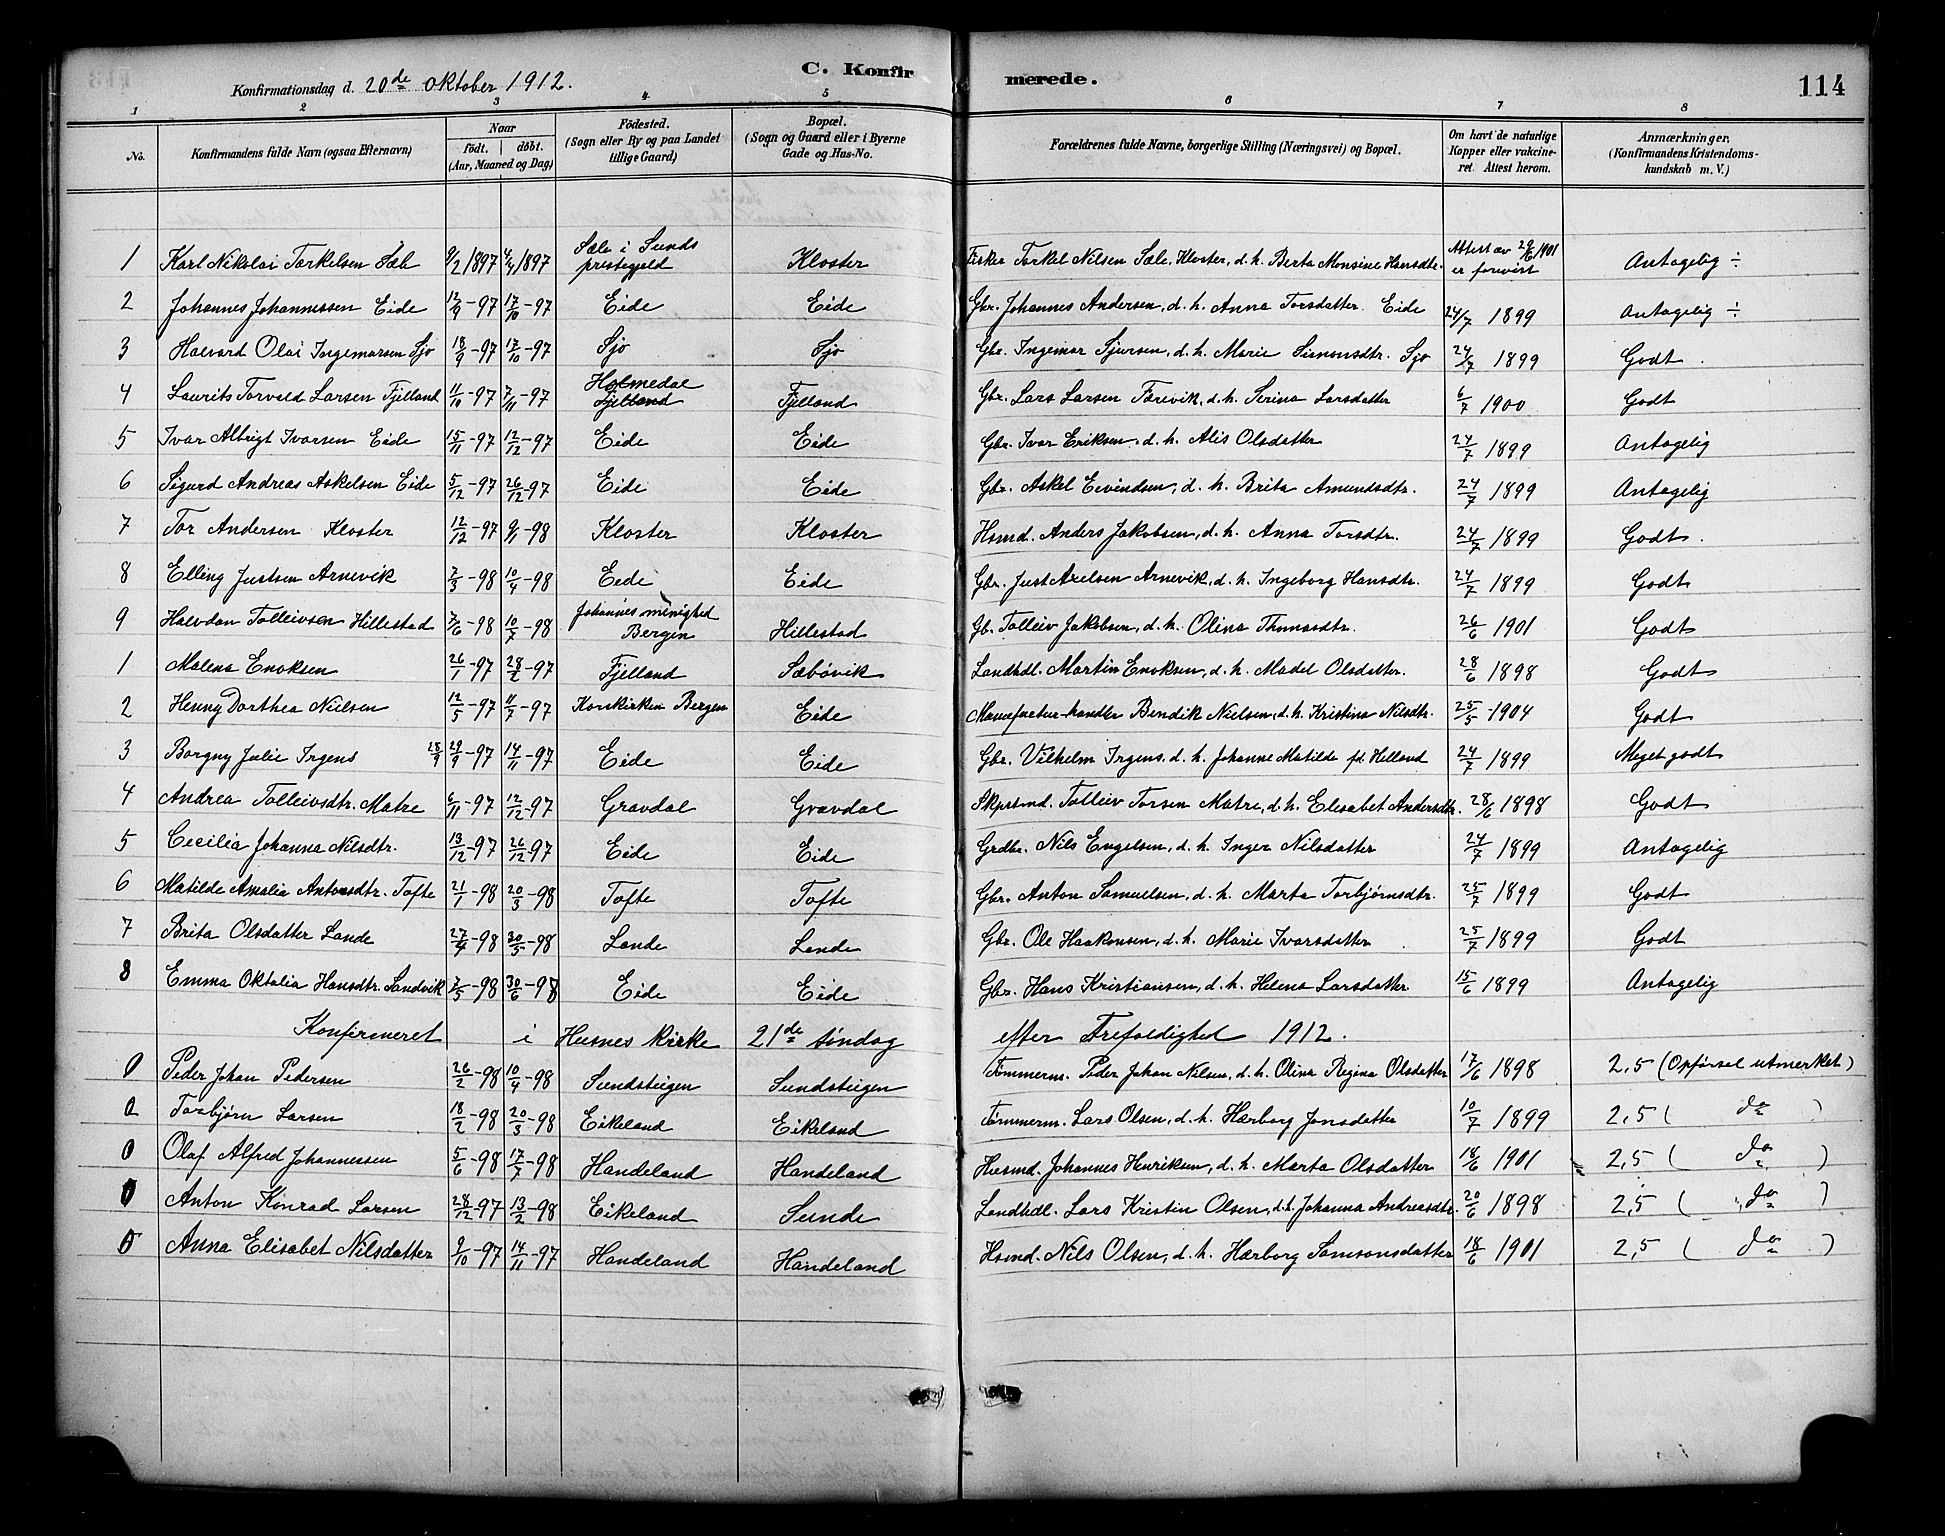 C. Konfirmerede.
114
Konfirmationsdag d. 20de oktober 1912.
1 2 3 4 5 6 7 8
No.
Konfirmandens fulde Navn (ogsaa Efternavn)
Naar
født. | døbt.
(Aar, Maaned og Dag)
Fødested.
(Sogn eller By og paa Landet
tillige Gaard)
Bopæl.
(Sogn og Gaard eller i Byerne
Gade og Hus-No.
Forældrenes fulde Navne, borgerlige Stilling (Næringsvei) og Bopæl.
Om havt de naturlige
Kopper eller vakcine-
ret. Attest herom.
Anmærkninger,
(Konfirmandens Kristendoms-
kundskab m. V.)
1 Karl Nikolai Torkelsen Sæle 9/2 1897 4/4 1897 Sæle i Sunds prestegjeld Kloster Fisker Torkel Nilsen Sæle, Kloster, d. h. Berta Monsine Hansdtr. Attest av 29/6 1901 er forevist Antagelig ÷
2 Johannes Johannessen Eide 12/9 -97 17/10 -97 Eide Eide Gbr. Johannes Andersen, d. h. Anna Torsdatter. Eide 24/7 1899 Antagelig ÷
3 Halvard Olai Ingemarsen Sjo 18/9 -97 17/10 -97 Sjo Sjo Gbr. Ingemar Sjursen, d. h. Marie Simonsdtr. Sjo 24/7 1899 Godt.
4 Laurits Torvald Larsen Fjelland 11/10 -97 7/11 -97 Holmedal Fjelland Fjelland Gbr. Lars Larsen Færevik, d. h. Serina Larsdatter 6/7 1900 Godt
5 Ivar Albrigt Ivarsen Eide 15/11 -97 12/12 -97 Eide Eide Gbr. Ivar Eriksen, d. h. Alis Olsdatter 24/7 1899 Antagelig
6 Sigurd Andreas Askelsen Eide 5/12 -97 26/12 -97 Eide Eide Gbr. Askel Eivindsen, d. h. Brita Amundsdtr. 24/7 1899 Antagelig
7 Tor Andersen Kloster 12/12 -97 9/1 -98 Kloster Kloster Hsmd. Anders Jakobsen, d. h. Anna Torsdtr. 24/7 1899 Godt.
8 Elling Justsen Arnevik 7/3 -98 10/4 -98 Eide Eide Gbr. Just Axelsen Arnevik, d. h. Ingeborg Hansdtr. 24/7 1899 Godt
9 Halvdan Tolleivsen Hillestad 7/6 -98 10/7 -98 Johannes menighed Bergen Hillestad Gb. Tolleiv Jakobsen, d. h. Olina Thomasdtr. 26/6 1901 Godt
1 Malena Enoksen 26/1 -97 28/2 -97 Fjelland Sæbøvik Landhdl. Martin Enoksen, d. h. Madel Olsdatter. 28/6 1898 Godt
2 Henny Dorthea Nielsen 12/5 -97 11/7 -97 Korskirken Bergen Eide Manufaktur-handler Bendik Nielsen, d. h. Kristina Nilsdtr. 25/5 1904 Godt
3 Borgny Julie Irgens 28/9 29/9 -97 14/11 -97 Eide Eide Gbr. Vilhelm Irgens. d. h. Johanne Matilde fd. Helland 24/7 1899 Meget godt
4 Andrea Tolleivsdtr. Matre 6/11 -97 12/12 -97 Gravdal Gravdal Skpsmd. Tolleiv Torsen Matre, d. h. Elisabet Andersdtr. 28/6 1898 Godt
5 Cecilia Johanna Nilsdtr. 13/12 -97 26/12 97 Eide Eide Grdbr. Nils Engelsen, d. h. Inger Nilsdatter 24/7 1899 Antagelig
6 Matilde Amalia Antonsdtr. Tofte 21/1 -98 20/3 -98 Tofte Tofte Gbr. Anton Samuelsen, d. h. Marta Torbjørnsdtr. 25/7 1899 Godt
7 Brita Olsdatter Lande 27/4 -98 30/5 -98 Lande Lande Gbr. Ole Haakonsen, d. h. Marie Ivarsdatter 25/7 1899 Godt
8 Emma Oktalia Hansdtr. Sandvik 7/5 -98 30/6 -98 Eide Eide Gbr. Hans Kristiansen, d. h. Helena Larsdatter 15/6 1899 Antagelig
Konfirmeret i Husnes kirke 21de søndag efter Trefoldighed 1912.
0 Peder Johan Pedersen 26/2 -98 10/4 -98 Sundsteigen Sundsteigen Tømmerm. Peder Johan Nilsen, d. h. Olina Regina Olsdatter 17/6 1898 2,5 (Opførsel utmerket)
0 Torbjørn Larsen 18/2 -98 20/3 -98 Eikeland Eikeland Tømmerm. Lars Olsen, d. h. Hærborg Jonsdatter 10/7 1899 2,5 ( do )
0 Olaf Alfred Johannessen 5/6 -98 17/7 -98 Handeland Handeland Husmd. Johannes Henriksen, d. h. Marta Olsdatter 18/6 1901 2,5 ( do )
0 Anton Konrad Larsen 28/12 97 13/2 -98 Eikeland Sunde Landhdl. Lars Kristin Olsen, d. h. Johanna Andreasdtr. 20/6 1898 2,5 ( do )
0 Anna Elisabet Nilsdatter 9/10 -97 14/11 -97 Handeland Handeland Hsmd. Nils Olsen, d. h. Hærborg Samsonsdatter 18/6 1901 2,5 ( do )